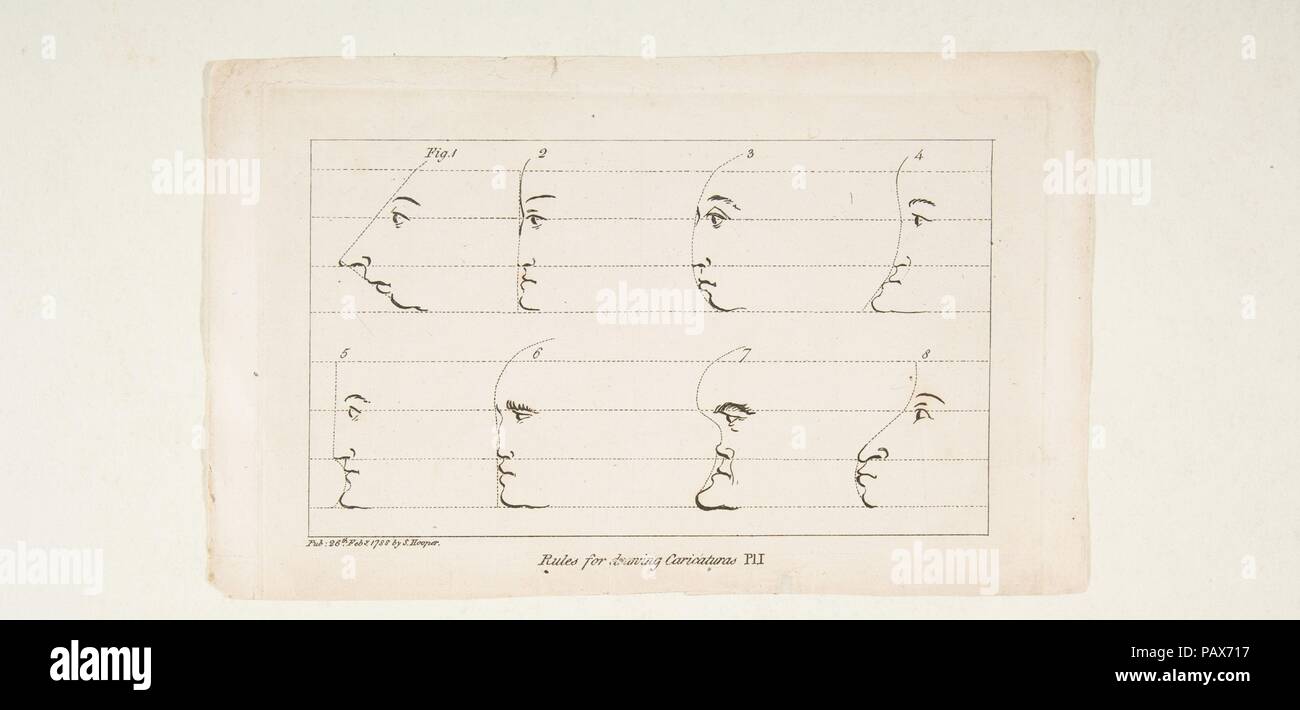 Fig.1 2 3 4
5 6 7 8
Pub: 26th Feb. 1788 by S. Hooper.
Rules for drawing Caricaturas Pl.I
alamy
alamy stock photo
PAX717
www.alamy.com